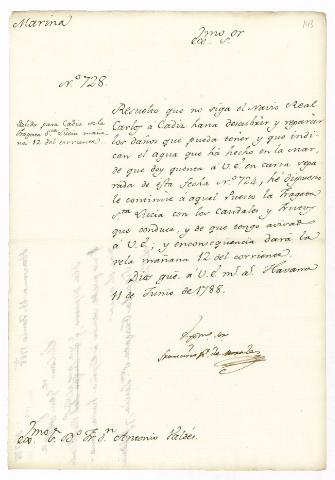 Marina
Exmo. Sor.
N.º 728.
Salida para Cadiz de la
Fragata Sta. Lucia maña
na 12 del corriente.
Resuelto que no siga el Navio Real
Carlos á Cadiz hasta descubrir y reparar
los daños que pueda tener, y que indi-
can el agua que há hecho en la Mar,
de que doy quenta á V.E. en carta sepa
rada de esta fecha N.º 724, hé dispuesto
le continúe á aquel Puerto la Fragata
Sta. Lucia con los Caudales y frutos
que conduce, y de que tengo avisado
á V.E.; y en consequencia dará la
vela mañana 12 del corriente.
Dios gue. á V.E. ms. as. Havana
11 de Junio de 1788.
Exmo. Sor.
Francisco
Exmo. Sor. Bo. Fr. Dn. Antonio Valdés.